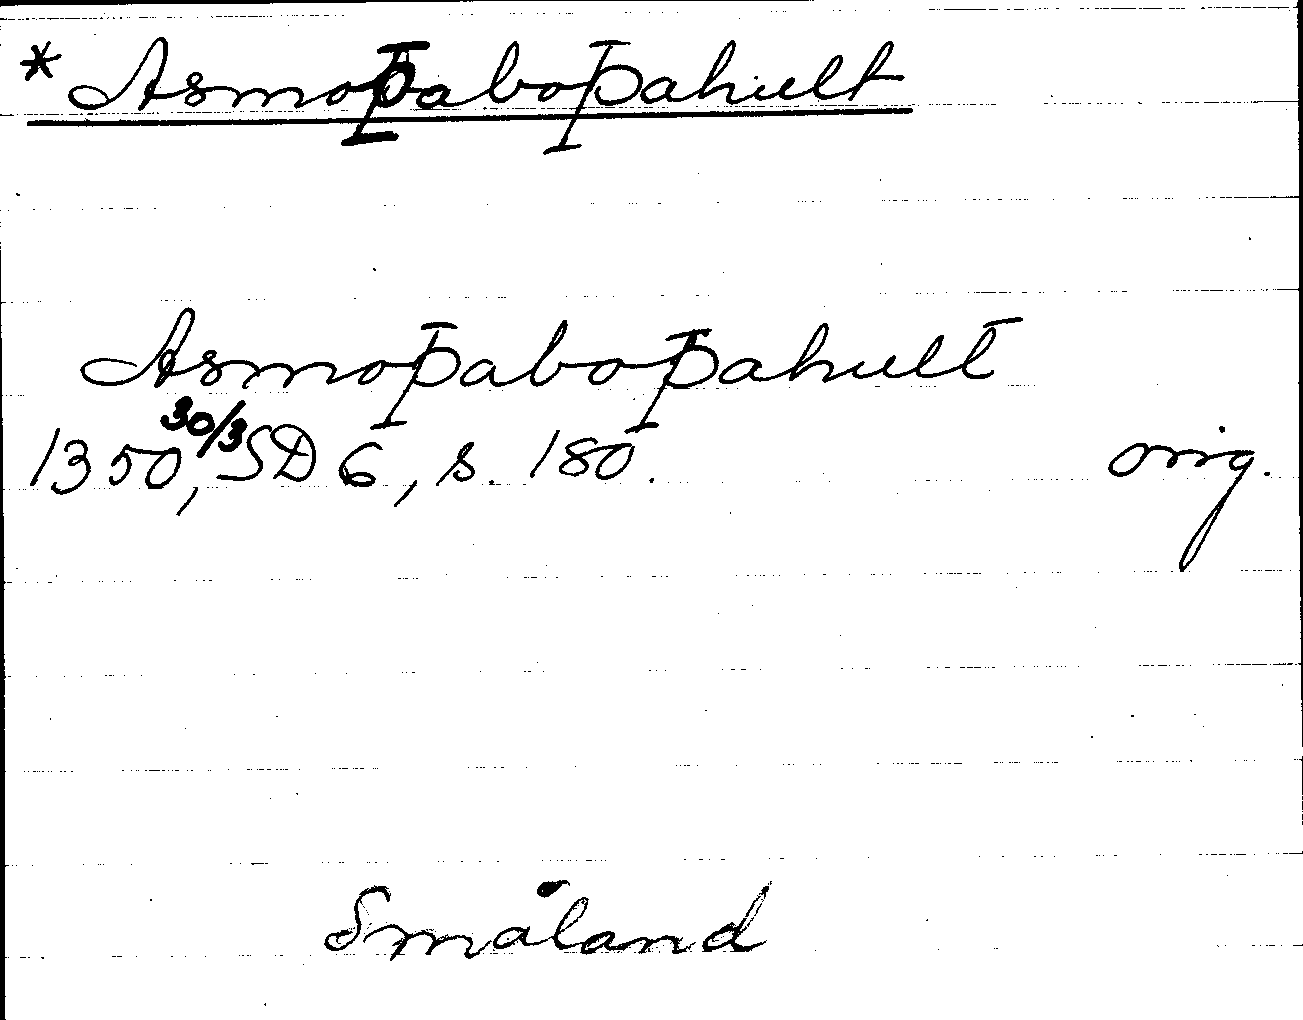 * Asmoþaboþahult
Asmoþaboþahult
1350 30/3, SD 6, s. 180.
orig.
Småland